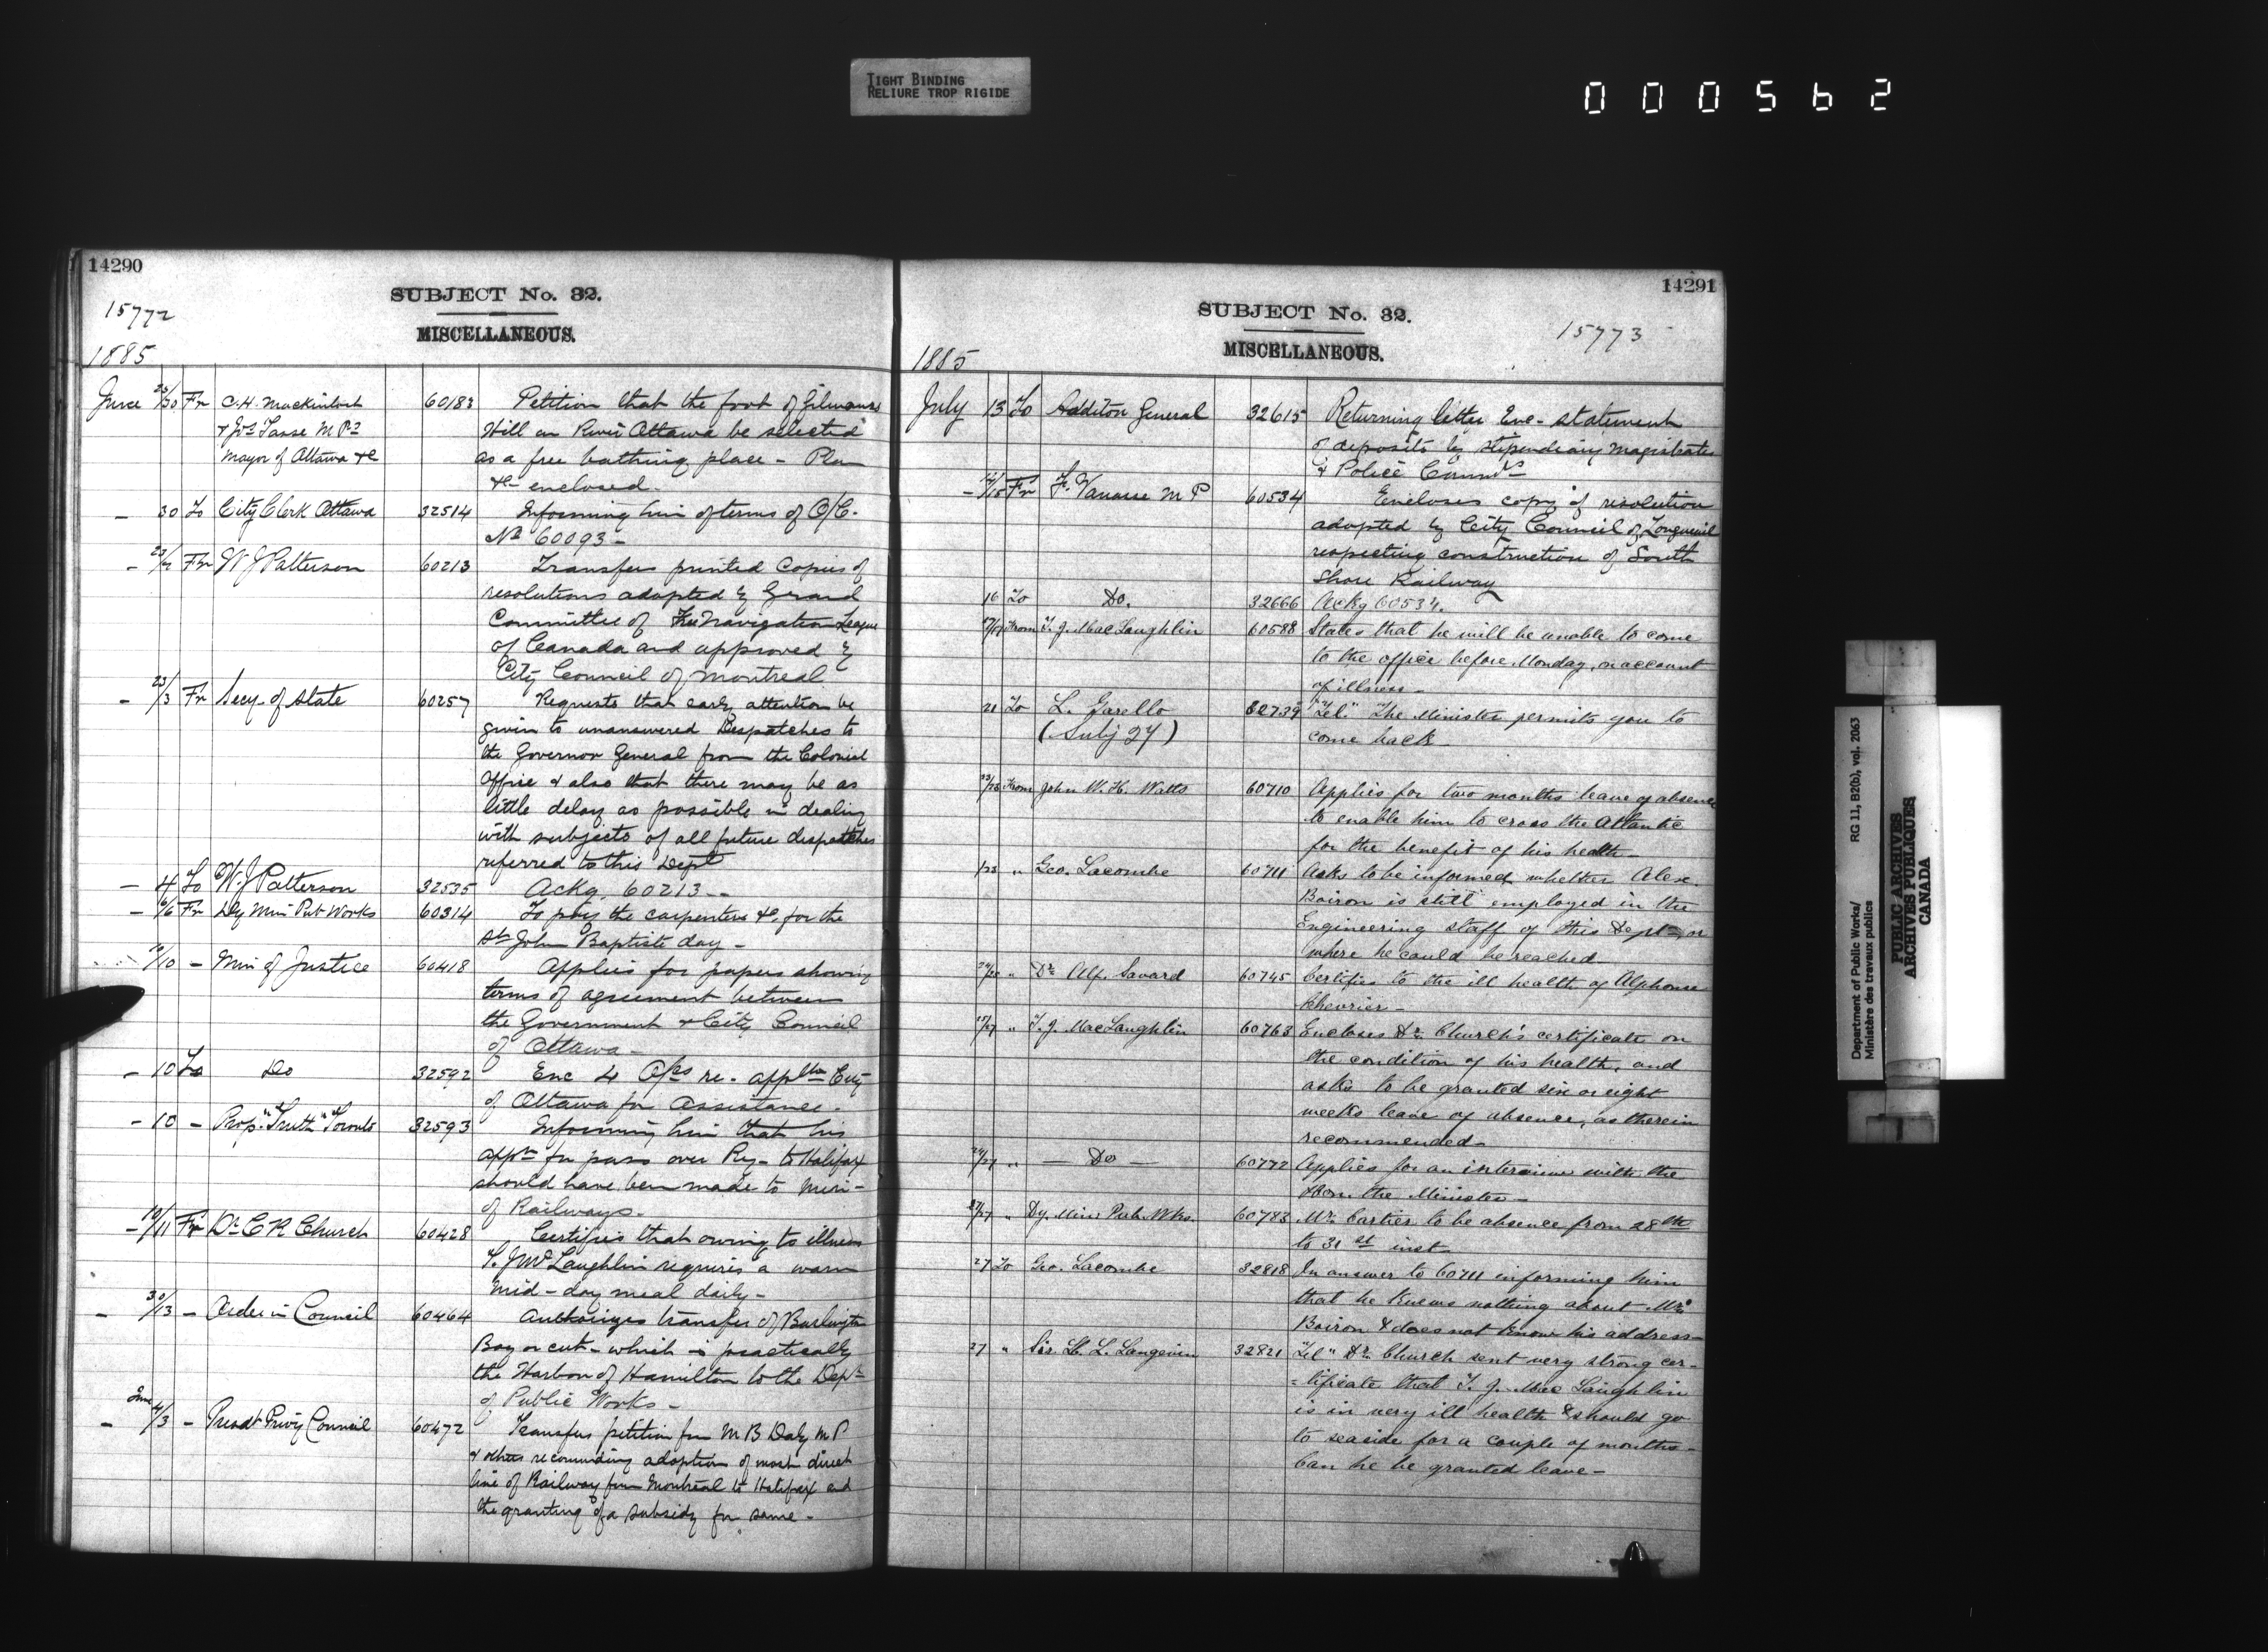 TIGHT BINDING
RELIURE TROP RIGIDE
000562
14290
SUBJECT No. 32.
15772
MISCELLANEOUS.
1885
June 25/30 Fr C. H. Mackintosh 60183 Petition that the foot of Gilmours
& Jos Tasse M Ps Hill on River Ottawa be selected
Mayor of Ottawa &c as a free bathing place - Plan
&c enclosed.
- 30 To City Clerk Ottawa 32514 Informing him of terms of O/C.
No 60093 -
- Fr W J Patterson 60213 Transfers printed copies of
resolutions adopted by Grand
Committee of Navigation League
of Canada and approved by
City Council of Montreal
- 23/3 Fr Secy. of State 60257 Requests that early attention be
given to unanswered Despatches to
the Governor General from the Colonial
Office & also that there may be as
little delay as possible in dealing
with subjects of all future despatches
referred to this Dept
- 4 To W. J Patterson 32535 Ackg. 60213 -
- 6/6 Fr Dy Min Pub Works 60314 To pay the carpenters &c, for the
St John Baptiste day -
10/10 - Min of Justice 60418 Applies for papers showing
terms of agreement between
the Government & City Council
of Ottawa -
- 10 To Do 32592 Enc 4 re. City
of Ottawa for assistance -
- 10 - Prop. "Truth" Toronto 32593 Informing him that his
appn for pass over Ry - to Halifax
should have been made to Min -
of Railways -
- 10/11 Fr Dr C R Church 60428 Certifies that owing to illness
T. J McLaughlin requires a warm
mid-day meal daily -
- 30/13 - Order in Council 60464 Authorizes transfer of Burlington
Bay or cut - which is practically
the Harbor of Hamilton to the Dept
of Public Works -
- June 4/3 - Presdt Privy Council 60472 Transfers petition from M B Daly M P
& others recommding adoption of most direct
line of Railway from Montreal to Halifax and
the granting of a subsidy for same -
14291
SUBJECT No. 32.
15773
MISCELLANEOUS.
1885
July 13 To Auditor General 32615 Returning letter Enc - statement
of deposits by Stipendiary Magistrates
& Police
- Fr F. Vanasse M P 60534 Encloses copy of resolution
adopted by City Council of Longueuil
respecting construction of South
Shore Railway
16 To Do. 32666 Ackg 60534.
From T. J. MacLaughlin 60588 States that he will be unable to come
to the office before Monday, on account
of illness -
21 To L. Garello 32739 "Tel." "The Minister permits you to
(Subj 27) come back -
From John W. H. Watts 60710 Applies for two months leave of absence
to enable him to cross the Atlantic
for the benefit of his health -
/25 " Geo. Lacombe 60711 Asks to be informed whether Alex.
Boiron is still employed in the
Engineering staff of this Dept - or
where he could be reached
" Dr Alf. Savard 60745 Certifies to the ill health of Alphonse
Chevrier -
" T. J. MacLaughlin 60763 Encloses Dr Church's certificate on
the condition of his health, and
asks to be granted six or eight
weeks leave of absence, as therein
recommended -
" - Do - 60772 Applies for an interview with the
Hon. the Minister -
27/27 " Dy. Min. Pub. Wks. 60783 Mr. Cartier to be absence from 28th
to 31st inst.
27 To Geo. Lacombe 32818 In answer to 60711 informing him
that he knows nothing about Mr.
Boiron & does not know his address -
27 " Sir H. L. Langevin 32821 "Tel" Dr. Church sent very strong cer-
=tificate that T. J. Mac Laughlin
is in very ill health & should go
to seaside for a couple of months -
Can he be granted leave -
Department of Public Works/ RG 11, B2(b), vol. 2063
Ministère des travaux publics
PUBLIC ARCHIVES
ARCHIVES PUBLIQUES
CANADA